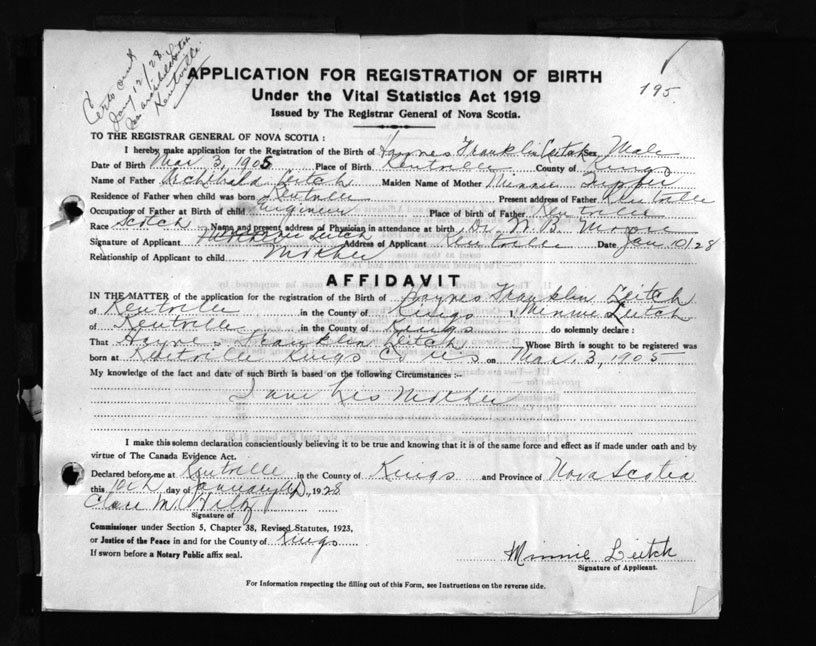 Jany 12/28
Kentville
195
APPLICATION FOR REGISTRATION OF BIRTH
Under the Vital Statistics Act 1919
Issued by The Registrar General of Nova Scotia.
TO THE REGISTRAR GENERAL OF NOVA SCOTIA :
I hereby make application for the Registration of the Birth of Haynes Franklin Leitch Sex Male
Date of Birth Mar 3, 1905 Place of Birth Kentville County of Kings
Name of Father Archibald Leitch Maiden Name of Mother Minnie
Residence of Father when child was born Kentville Present address of Father Kentville
Occupation of Father at Birth of child Engineer Place of birth of Father Kentville
Race Scotch Name and present address of Physician in attendance at birth Dr. W B Moore
Signature of Applicant Leitch Address of Applicant Kentville Date Jan 10/28
Relationship of Applicant to child Mother
AFFIDAVIT
IN THE MATTER of the application for the registration of the Birth of Haynes Franklin Leitch
of Kentville in the County of Kings I Minnie Leitch
of Kentville in the County of Kings do solemnly declare :
That Haynes Franklin Leitch Whose Birth is sought to be registered was
born at Kentville Kings Co N S on Mar. 3, 1905
My knowledge of the fact and date of such Birth is based on the following Circumstances :-
I am his Mother
I make this solemn declaration conscientiously believing it to be true and knowing that it is of the same force and effect as if made under oath and by
virtue of The Canada Evidence Act.
Declared before me at Kentville in the County of Kings and Province of Nova Scotia
this 10th day of January 1928
Signature of
Commissioner under Section 5, Chapter 38, Revised Statutes, 1923,
or Justice of the Peace in and for the County of Kings
If sworn before a Notary Public affix seal.
Minnie Leitch
Signature of Applicant.
For Information respecting the filling out of this Form, see Instructions on the reverse side.